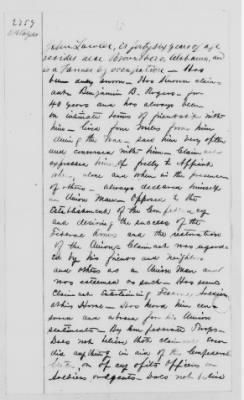 2259
John Lawler, is forty six years of age
resides near Brownsboro, Alabama, and
is a Farmer by occupation – Has
been duly sworn – Has known claim
ant Benjamin B. Rogers for
40 years and has always been
on intimate terms of friendship with
him – lived four miles from him
during the war – saw him very often
and conversed with him – Claimant
expressed himself freely to Affiant
alone and when in the presence
of others – always declared himself
an Union Man – opposed to the
establishment of the Confederacy
and desiring the success of the
Federal Arms and the restoration
of the Union. Claimant was regard
ed by his friends and neighbors
and others as an Union Man and
was esteemed as such – Has seen
Claimant entertaining Federal Soldiers
at his Home – Has heard him
and abused for his Union
sentiments – By him
Does not believe that claimant ever
did anything in aid of the Confederate
or of any of its officers or
Soldiers or agents – Does not believe